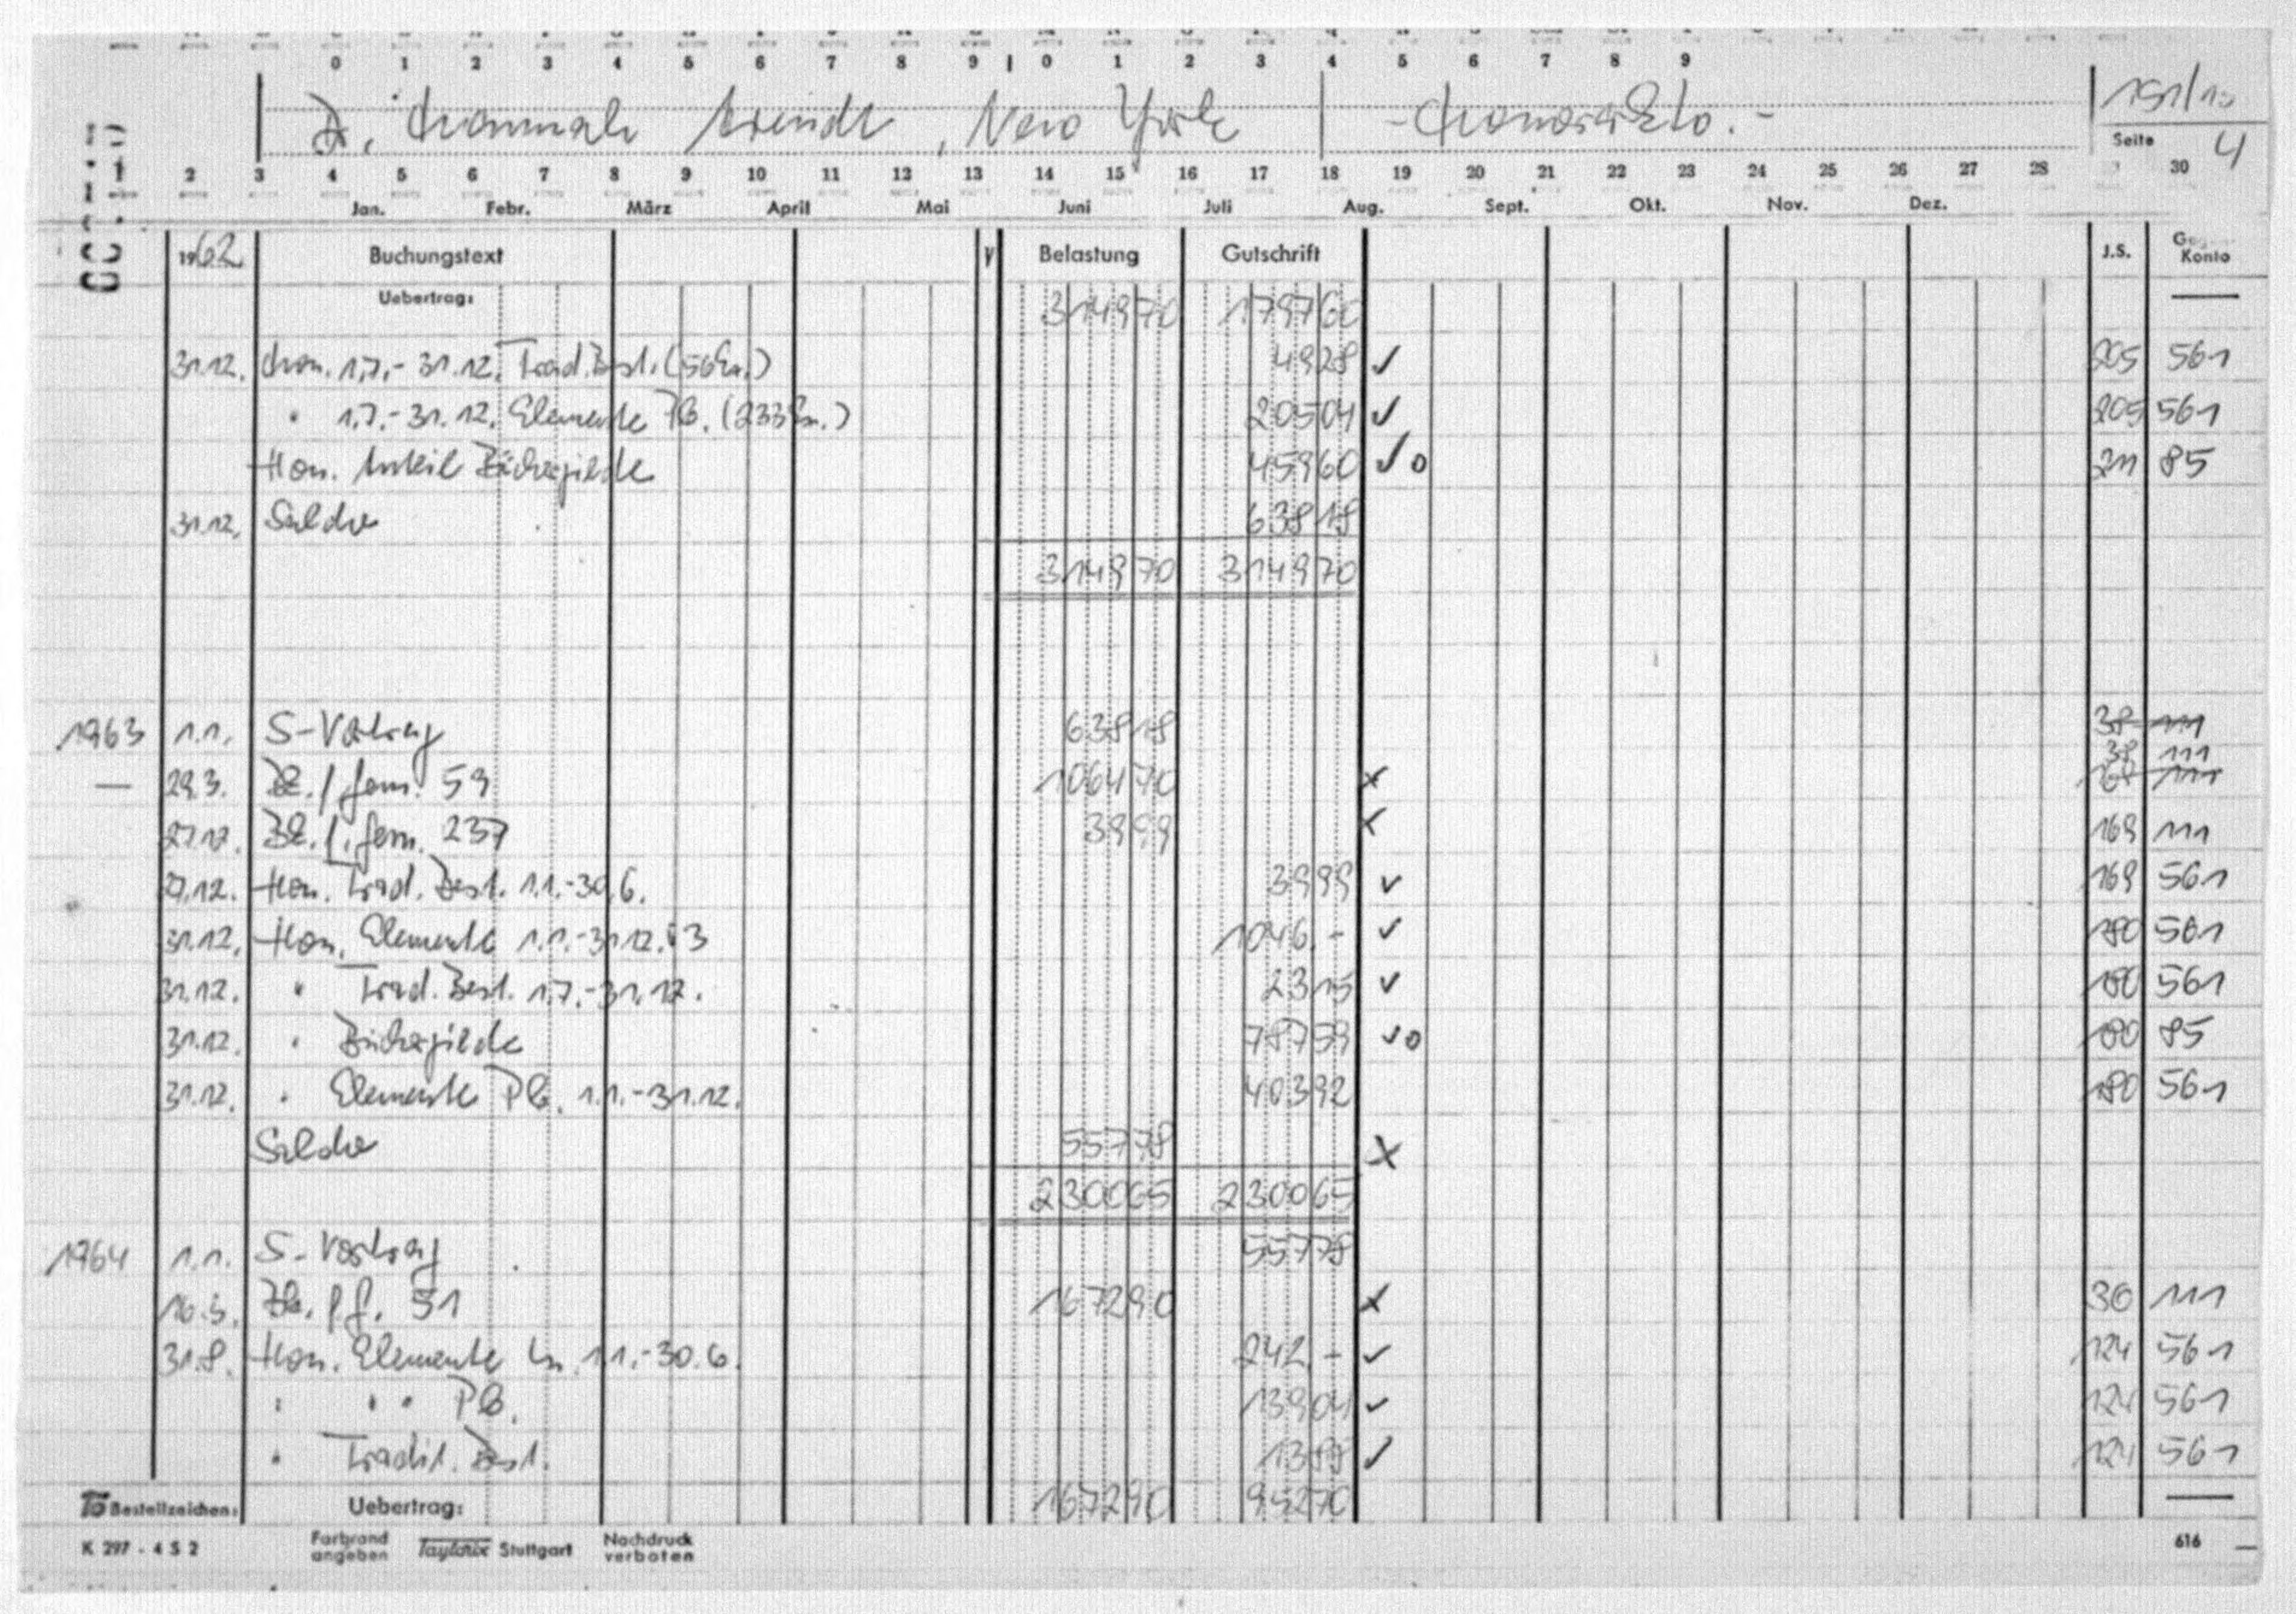 0 1 2 3 4 5 6 7 8 9 0 1 2 3 4 5 6 7 8 9
D. Hannah Arendt, New York - Honorarkto. - 151/10
Seite 4
2 3 4 5 6 7 8 9 10 11 12 13 14 15 16 17 18 19 20 21 22 23 24 25 26 27 28 30
Jan. Febr. März April Mai Juni Juli Aug. Sept. Okt. Nov. Dez.
1962 Buchungstext V Belastung Gutschrift J.S. Gegen-Konto
Uebertrag: 314970 179760 —
31.12. Hon. 1.7.- 31.12. Trad. Best. (56 Ex.) 4928 ✓ 205 561
" 1.7.- 31.12. Elemente PB. (233 Ex.) 20504 ✓ 205 561
Hon. Anteil Büchergilde 45960 ✓o 211 85
31.12. Saldo 63818
314970 314970
1963 1.1. S-Vortrag 63818 38 111
38 111
— 29.3. Bk. / fem. 59 106470 x 168 111
27.12. Bk. /. fem. 237 3999 x 169 111
27.12. Hon. Trad. Best. 1.1.-30.6. 3999 ✓ 169 561
31.12. Hon. Elemente 1.1.-31.12.63 1046.- ✓ 180 561
31.12. " Trad. Best. 1.7.-31.12. 2315 ✓ 180 561
31.12. " Büchergilde 78759 ✓o 180 85
31.12. " Elemente PB. 1.1.-31.12. 40392 180 561
Saldo 55778 X
230065 230065
1964 1.1. S-Vortrag 55778
16.3. Bk. f. 51 167290 x 30 111
31.8. Hon. Elemente Ln. 1.1.-30.6. 242.- ✓ 124 561
" " " PB. 13904 ✓ 124 561
" Tradit. Best. 1388 ✓ 124 561
Bestellzeichen: Uebertrag: 167290 95270 —
K 297 - 4 S 2 Farbrand angeben Taylorix Stuttgart Nachdruck verboten 616